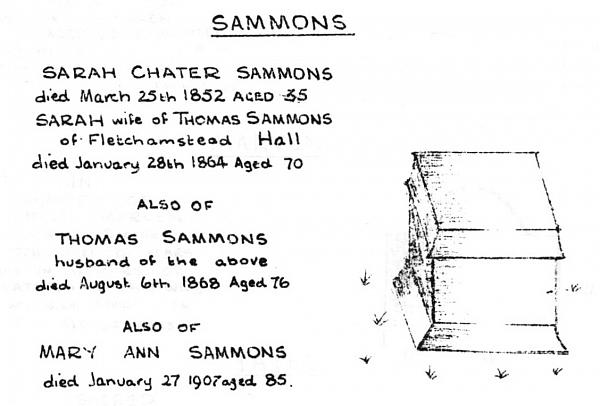 SAMMONS
SARAH CHATER SAMMONS
died March 25th 1852 AGED 35
SARAH wife of THOMAS SAMMONS
of Fletchamstead Hall
died January 28th 1864 Aged 70
ALSO OF
THOMAS SAMMONS
husband of the above
died August 6th 1868 Aged 76
ALSO OF
MARY ANN SAMMONS
died January 27 1907 aged 85.